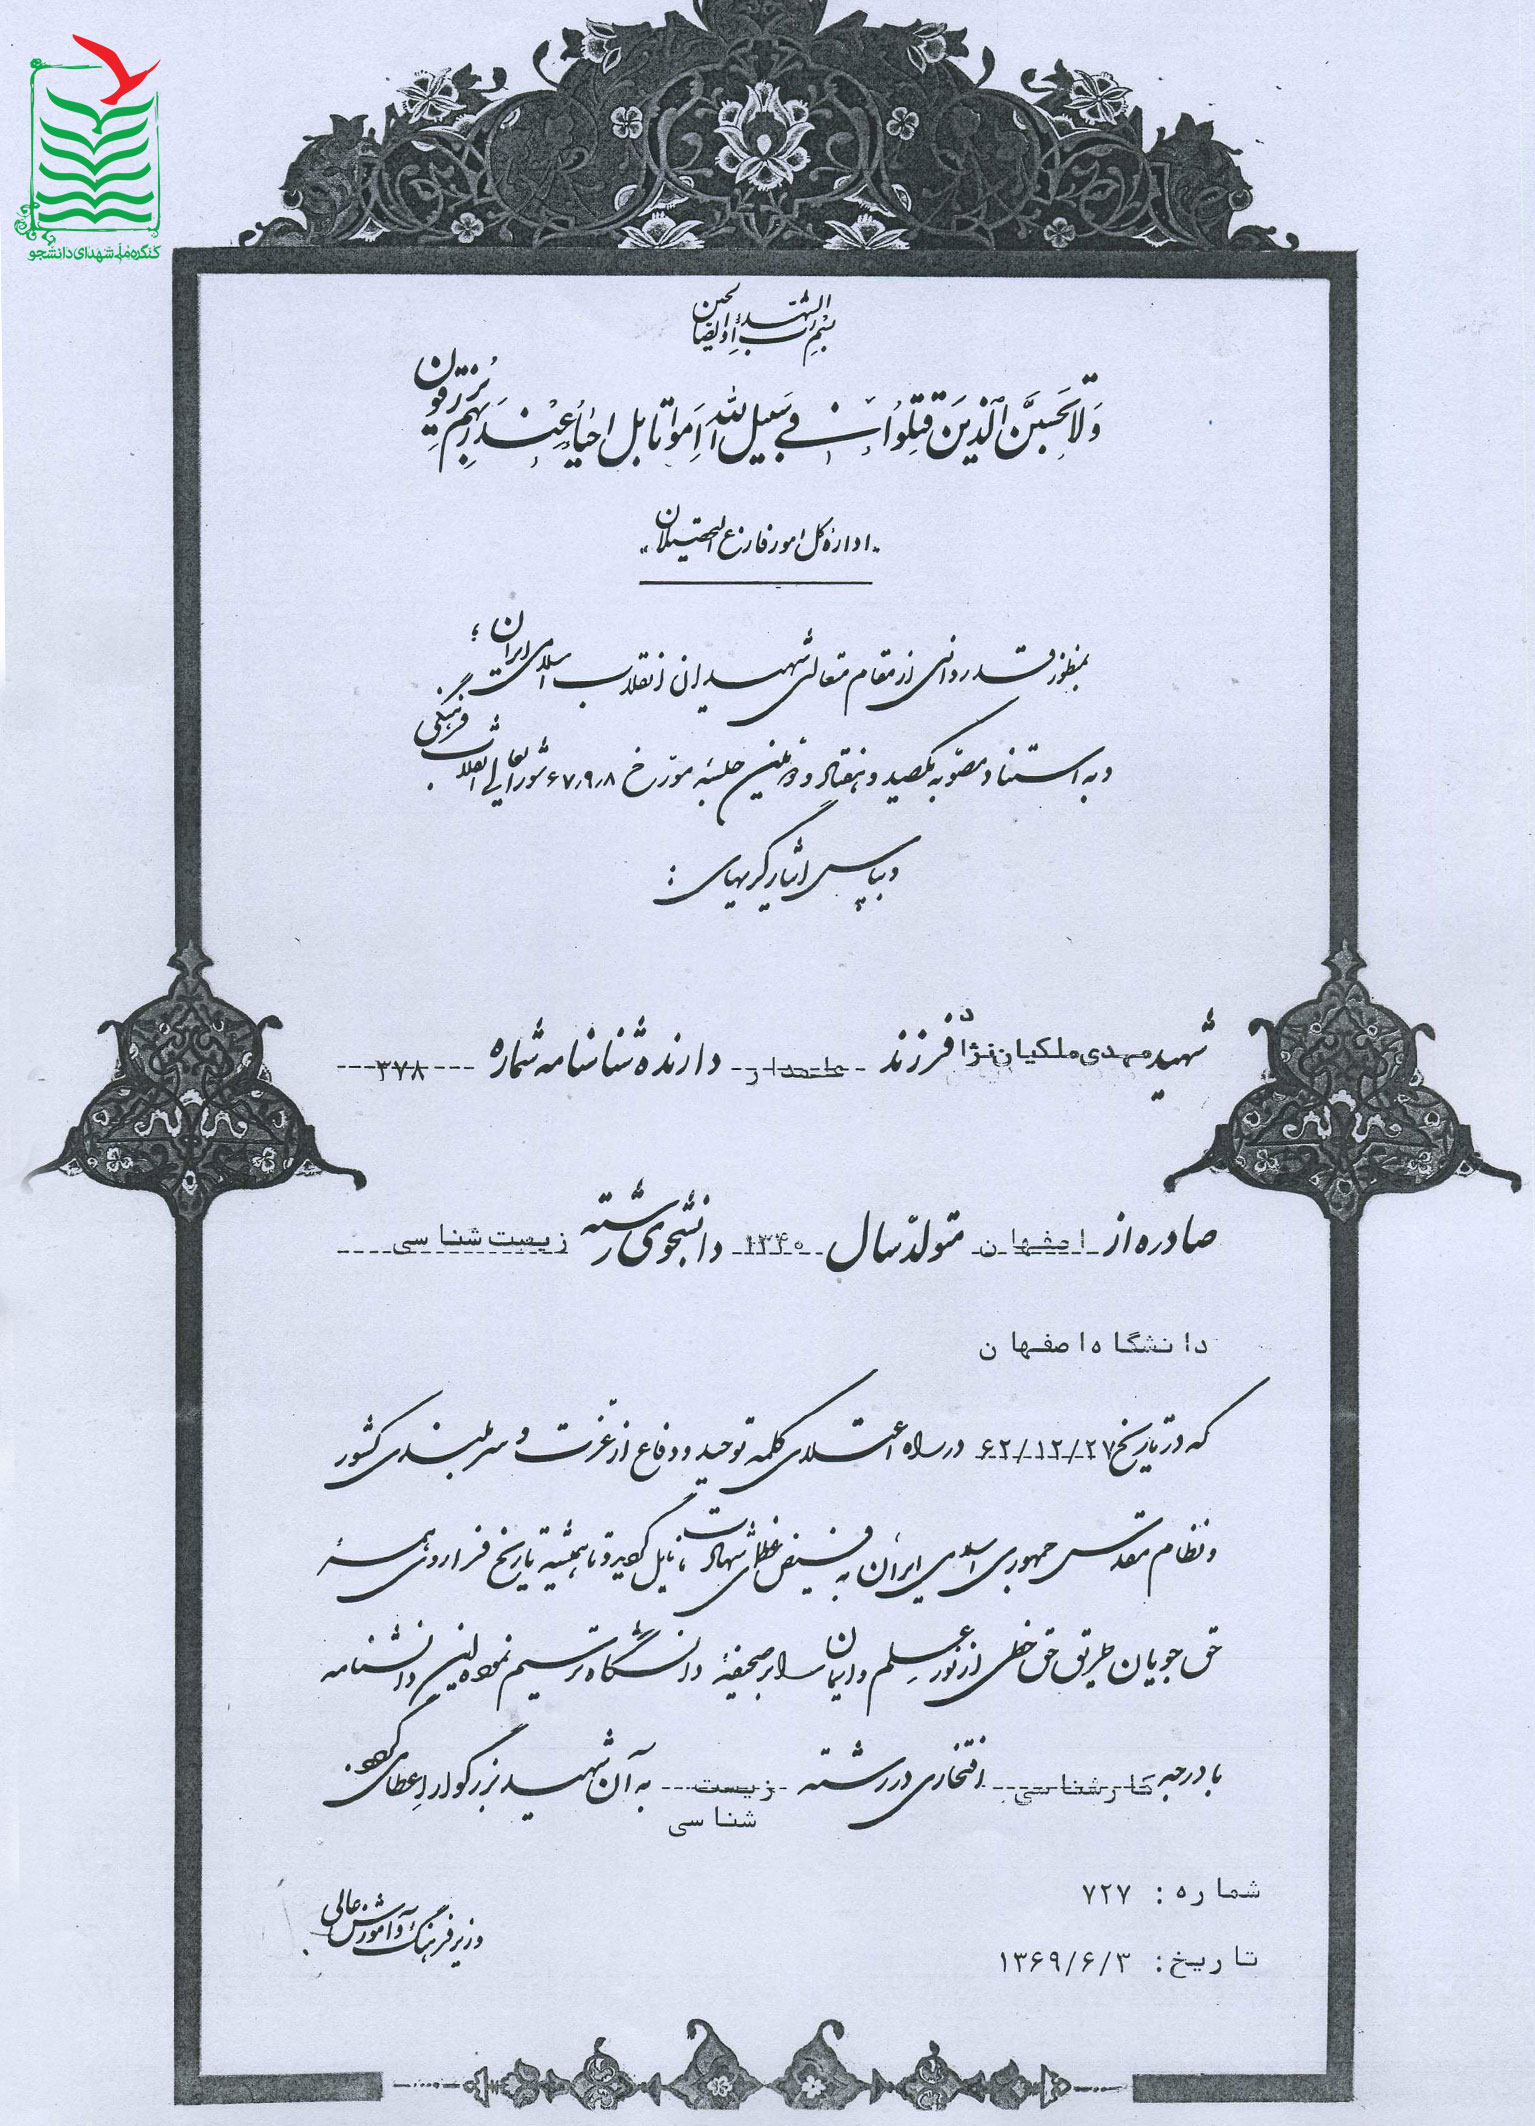 کنگره ملی شهدای دانشجو
بسم رب الشهداء و الصالحین
وَلا تَحسبنَّ الَّذینَ قتِلوُا فی سَبیل اللّه اَمواتا بل احیاءٌ عِنْدَ رَبّهِم یُرزَقوُن
"اداره کل امور فارغ التحصیلان"
بمنظور قدردانی از مقام متعالی شهیدان انقلاب اسلامی ایران ؛
و به استناد مصوبه یکصید و هفتاد و نهمین جلسهٔ مورّخ ۶۷٫۹٫۸ شورایعالی انقلاب فرهنگی
و بپاس ایثارگریهای :
شهید مهدی ملکیان نژاد فرزند علمدار دارنده شناسنامه شماره ۳۷۸
صادره از اصفهان متولّد سال ۱۳۴۰ دانشجوی رشته زیست شناسی
دانشگاه اصفهان
که در تاریخ ۶۲/۱۲/۲۷ در راه اعتلای کلمه توحید و دفاع از عزّت و سربلندی کشور
و نظام مقدس جمهوری اسلامی ایران به فیض عظمای شهادت نایل گردید و تا همیشه تاریخ فرا روی همهٔ
حق جویان طریق حق خطی از نور علم و ایمان را بر صحیفهٔ دانشگاه ترسیم نموده این دانشنامه
با درجه کارشناسی افتخاری در رشته زیست به آن شهید بزرگوار اعطا می گردد.
شناسی
شماره : ۷۲۷
تاریخ : ۱۳۶۹/۶/۳
وزیر فرهنگ و آموزش عالی